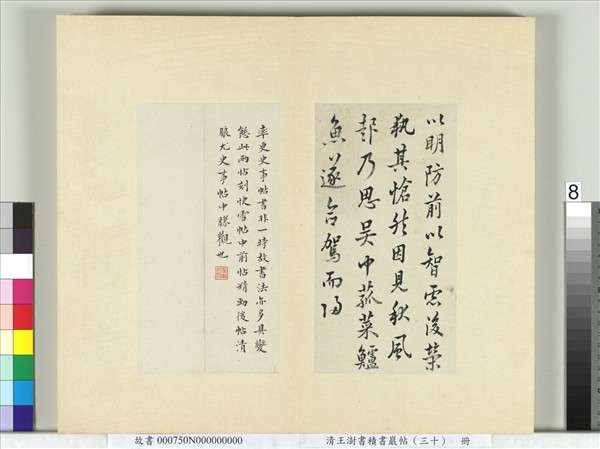 以明防前以智慮後榮
執其愴然因見秋風
起乃思吳中菰菜鱸
魚遂命駕而歸
率更史事帖書非一時故書法亦多具變
態此兩帖刻快雪帖中前帖精勁後帖清
臞尤史事帖中勝觀也
8
故書 000750N000000000
清王澍書積書巖帖（三十） 冊